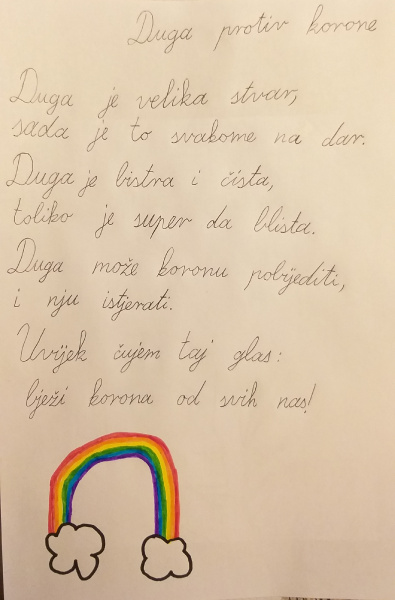 Duga protiv korone
Duga je velika stvar,
sada je to svakome na dar.
Duga je bistra i čista,
toliko je super da blista.
Duga može koronu pobijediti,
i nju istjerati.
Uvijek čujem taj glas:
bježi korona od svih nas!